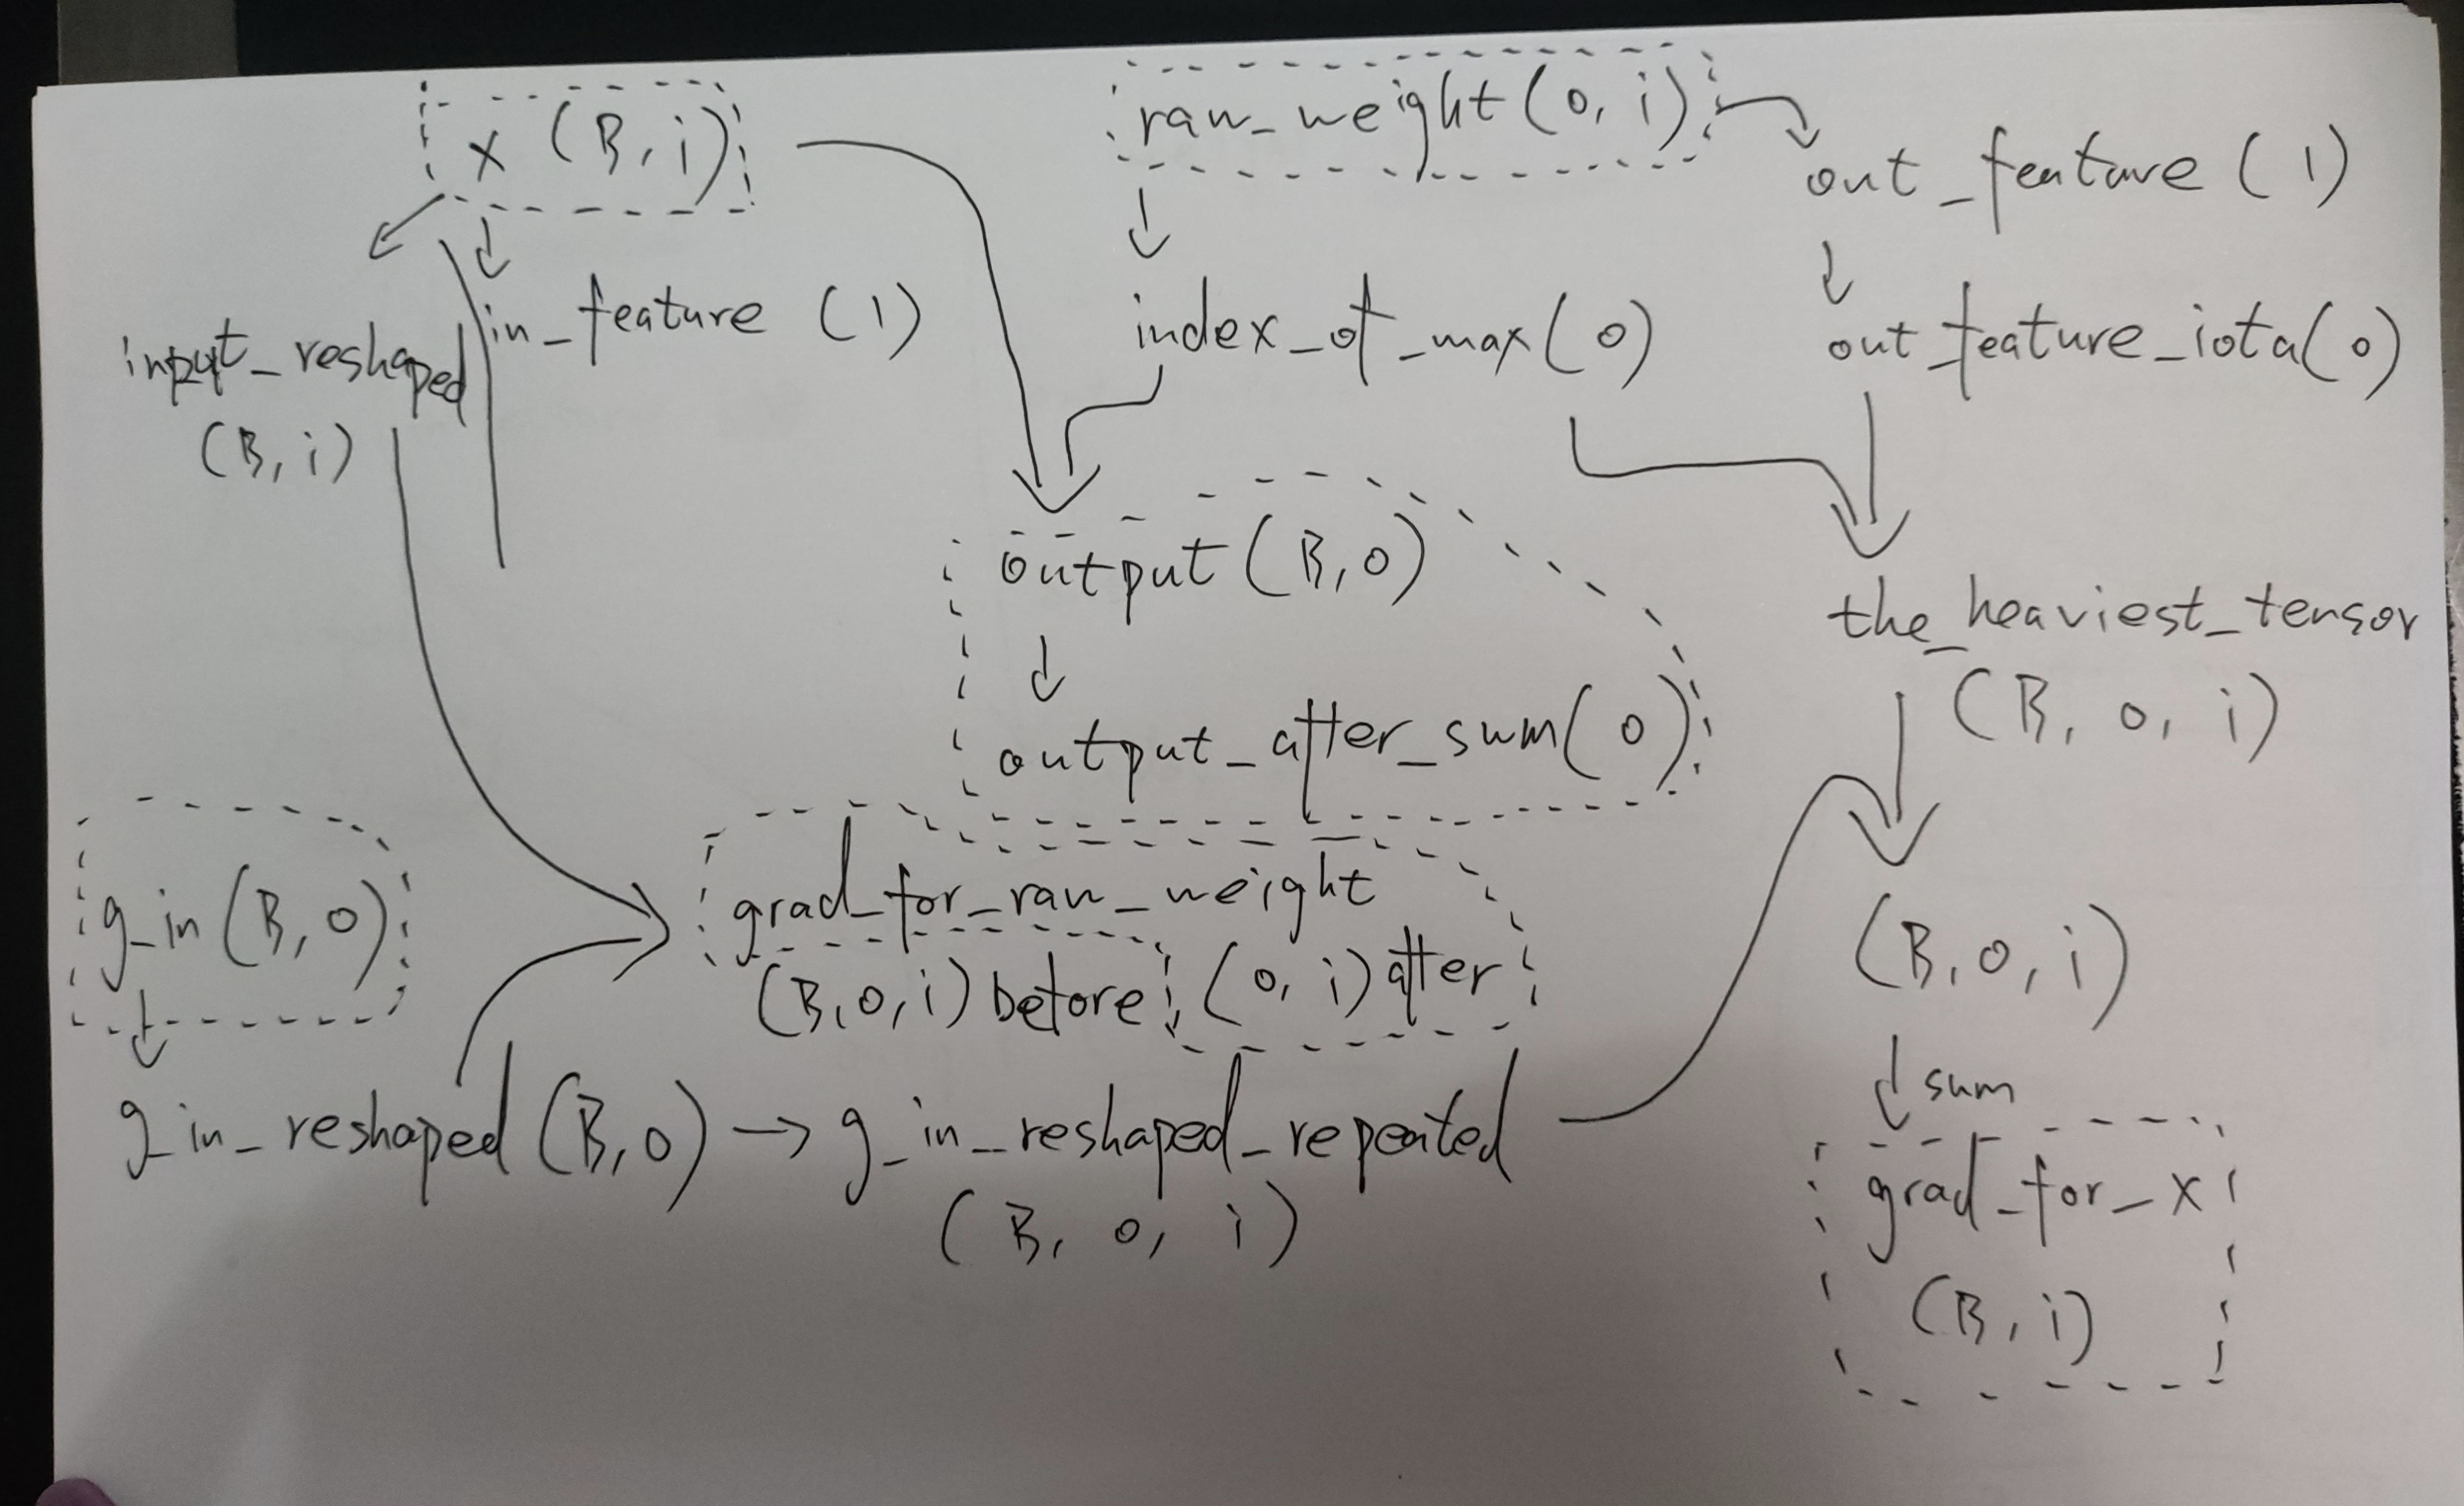 x (B, i)
raw_weight(o, i)
out_feature (1)
input_reshaped
(B, i)
in_feature (1)
index_of_max(o)
out_feature_iota(o)
output(B, o)
output_after_sum(o)
the_heaviest_tensor
(B, o, i)
g_in(B, o)
grad_for_raw_weight
(B, o, i) before (o, i) after
(B, o, i)
g_in_reshaped (B, o) → g_in_reshaped_repeated
(B, o, i)
sum
grad_for_x
(B, i)